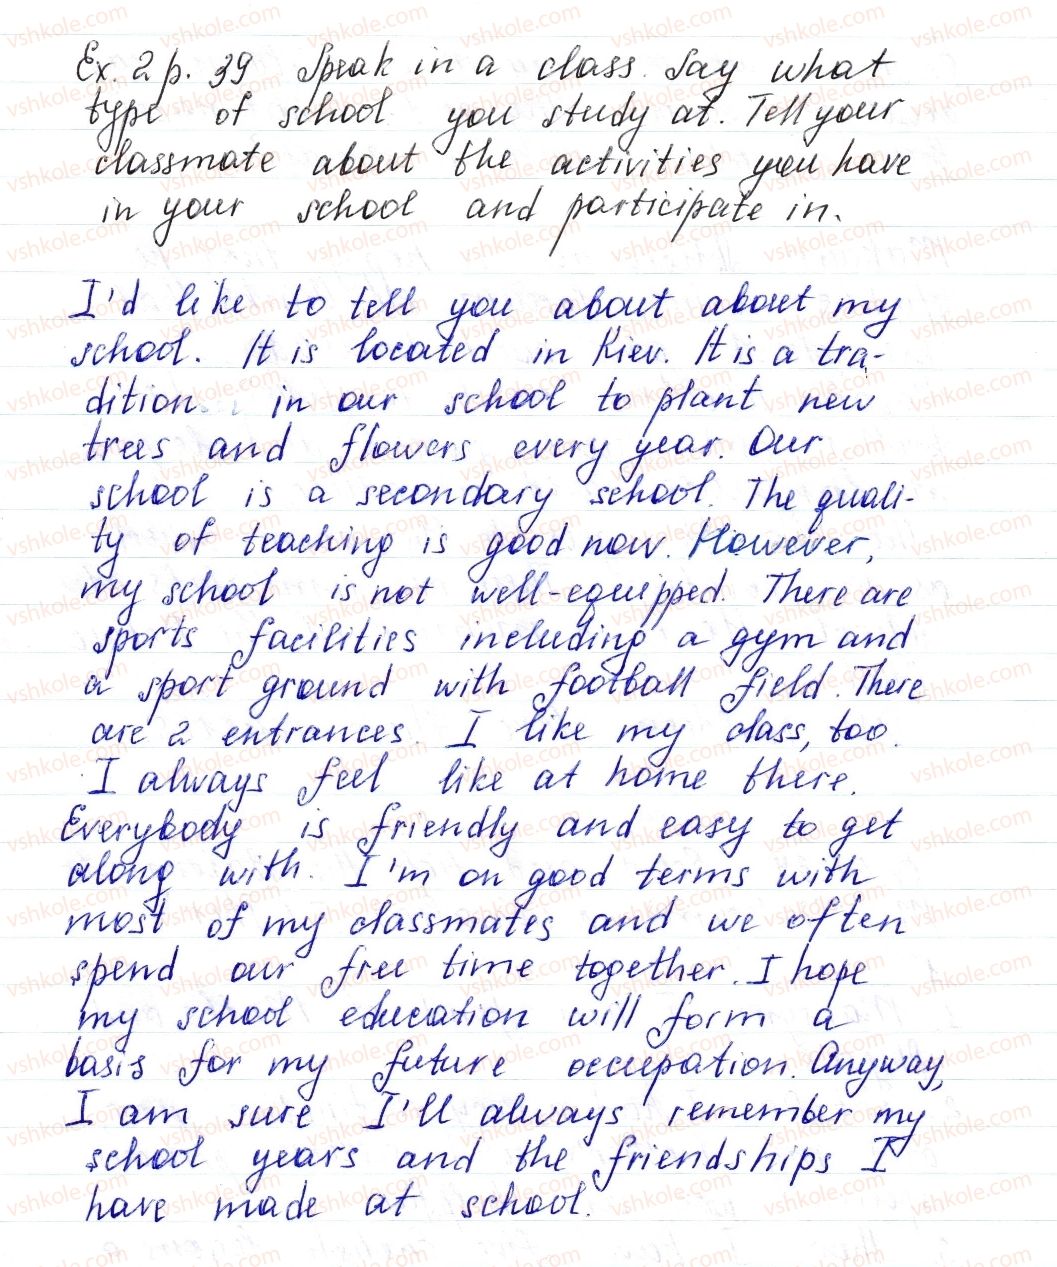 Ex. 2 p. 39 Speak in a class. Say what
type of school you study at. Tell your
classmate about the activities you have
in your school and participate in.
I'd like to tell you about about my
school. It is located in Kiev. It is a tra-
dition in our school to plant new
trees and flowers every year. Our
school is a secondary school. The quali-
ty of teaching is good now. However,
my school is not well-equipped. There are
sports facilities including a gym and
a sport ground with football field. There
are 2 entrances. I like my class, too.
I always feel like at home there.
Everybody is friendly and easy to get
along with. I'm on good terms with
most of my classmates and we often
spend our free time together. I hope
my school education will form a
basis for my future occupation. Anyway,
I am sure I'll always remember my
school years and the friendships I
have made at school.